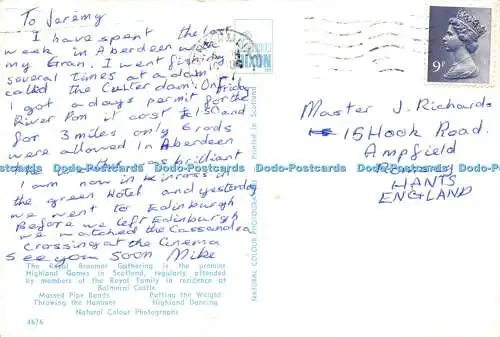 To Jeremy
I have spent the last
week in Aberdeen with
my Gran. I went fishing
several times at a dam
called the Culter dam. On friday
I got a days permit for the
River Don it cost £1.50 and
for 3 miles only 6 rods
were allowed in Aberdeen
was brilliant
I am now in Kinross in
the green Hotel and yesterday
we went to Edinburgh
Before we left Edinburgh
we watched the Cassandra
Crossing at the Cinema
See you soon Mike
The Royal Braemar Gathering is the premier
Highland Games in Scotland, regularly attended
by members of the Royal Family in residence at
Balmoral Castle.
Massed Pipe Bands Putting the Weight
Throwing the Hammer Highland Dancing
Natural Colour Photographs
4676
DIXON
Printed in Scotland
NATURAL COLOUR PHOTOGRAPH
9P
Master J. Richards
15 Hook Road.
Ampfield
Romsey
HANTS
ENGLAND
Dodo-Postcards Dodo-Postcards Dodo-Postcards Dodo-Postcards